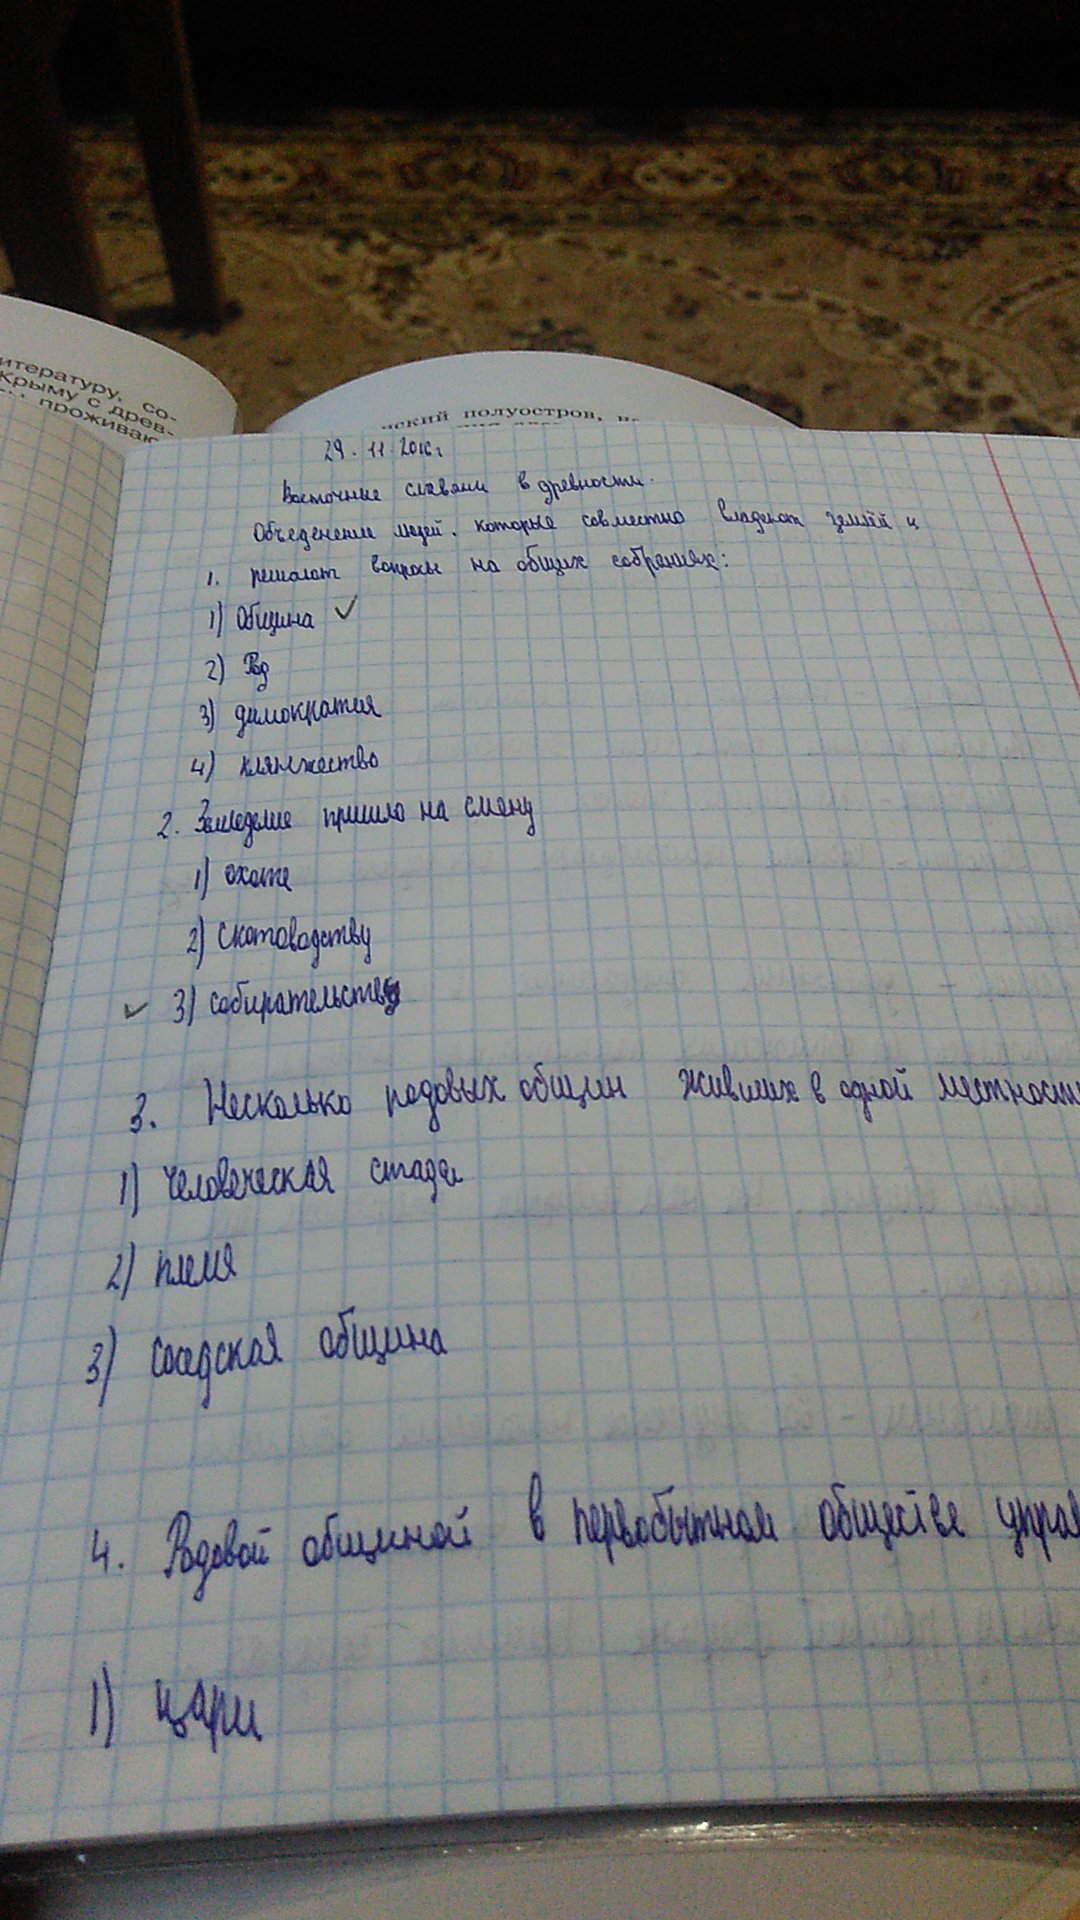 итературу, со-
Крыму с древ-
проживаю
нский полуостров, н
29.11.2016г
Восточные славяни в древности.
Объеденение людей, которые совместно владеют землёй и
1. решают вопросы на общих собраниях:
1) Община ✓
2) Род
3) димократия
4) княнжество
2. Земледелие пришло на смену
1) охоте
2) Скотоводству
✓ 3) собирательству
3. Несколько родовых общин живших в одной местности
1) Человеческая стада
2) племя
3) соседская община
4. Родовой общиной в первобытном обществе управ
1) цари